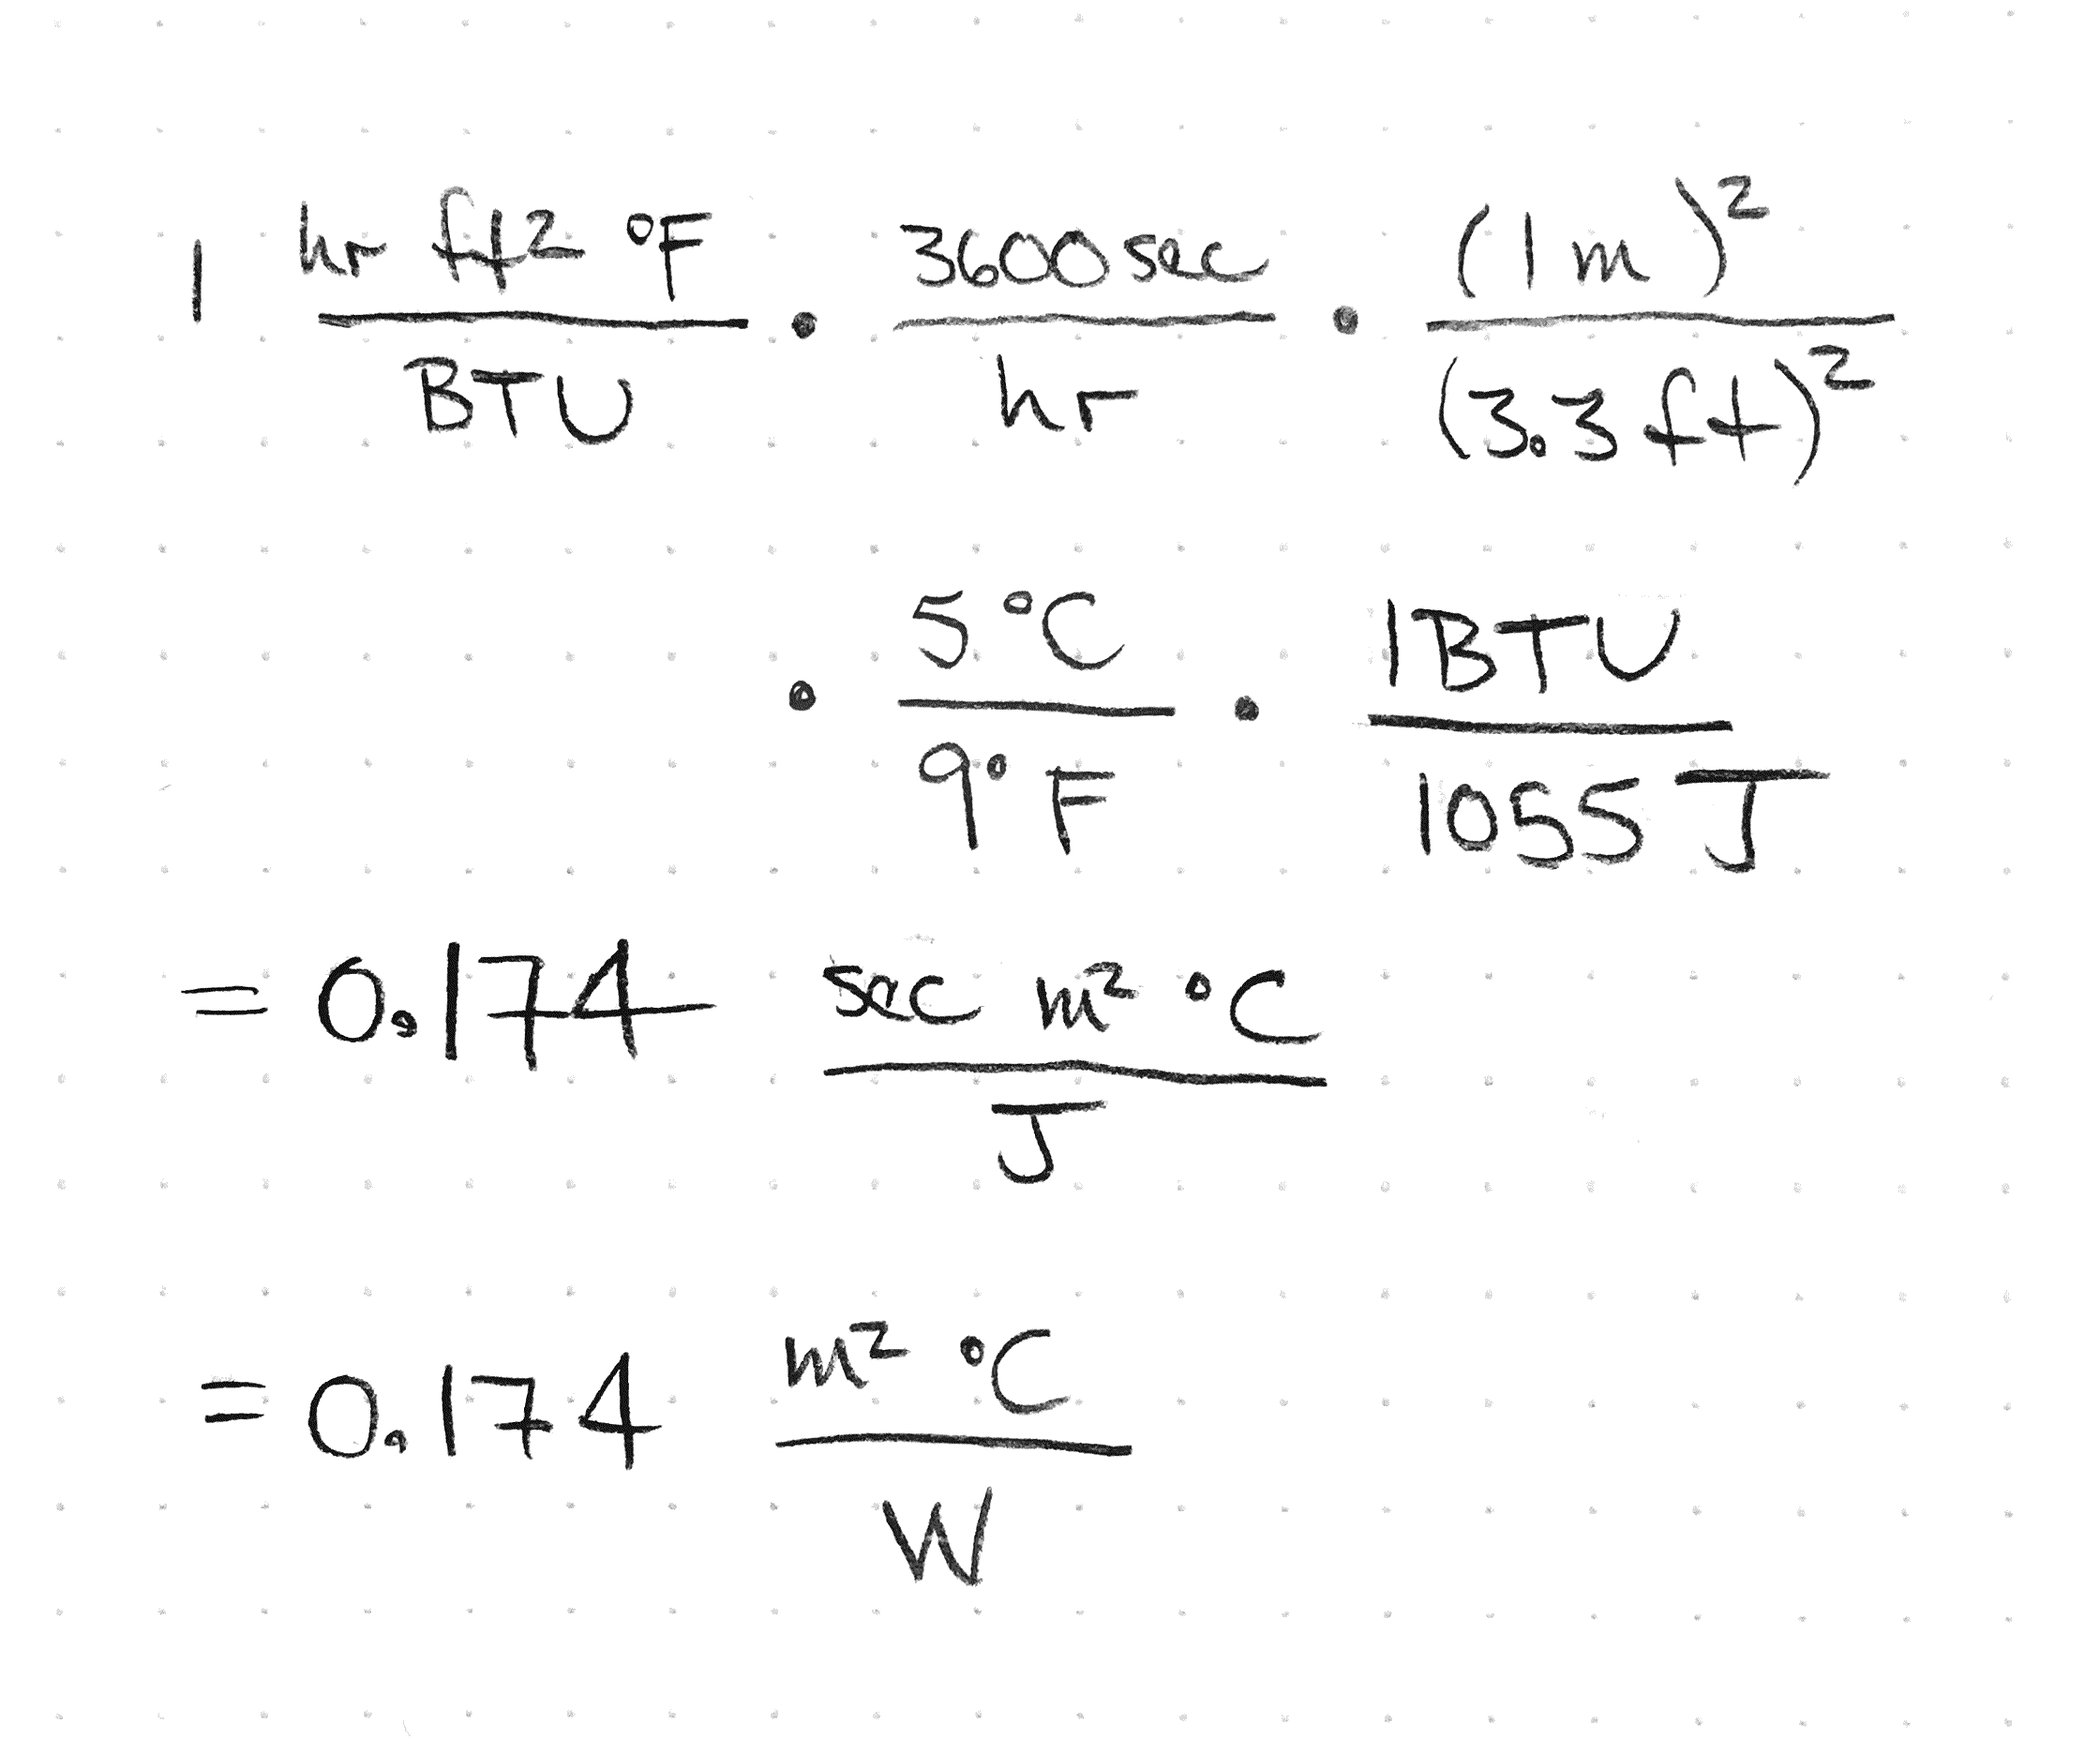 1 hr ft2 °F / BTU • 3600 sec / hr • (1 m)² / (3.3 ft)²
• 5 °C / 9° F • 1 BTU / 1055 J
= 0.174 sec m² °C / J
= 0.174 m² °C / W